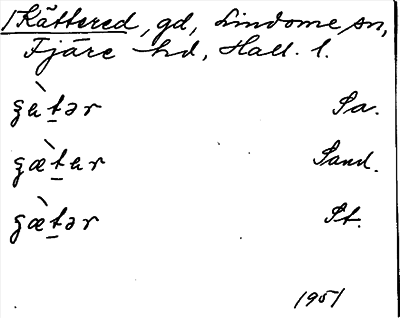 Kättered, gd, Lindome sn,
Fjäre hd, Hall. l.
ʂὲtər Sa.
ʂæ̀tər Sand.
ʂæ̀tər St.
1951